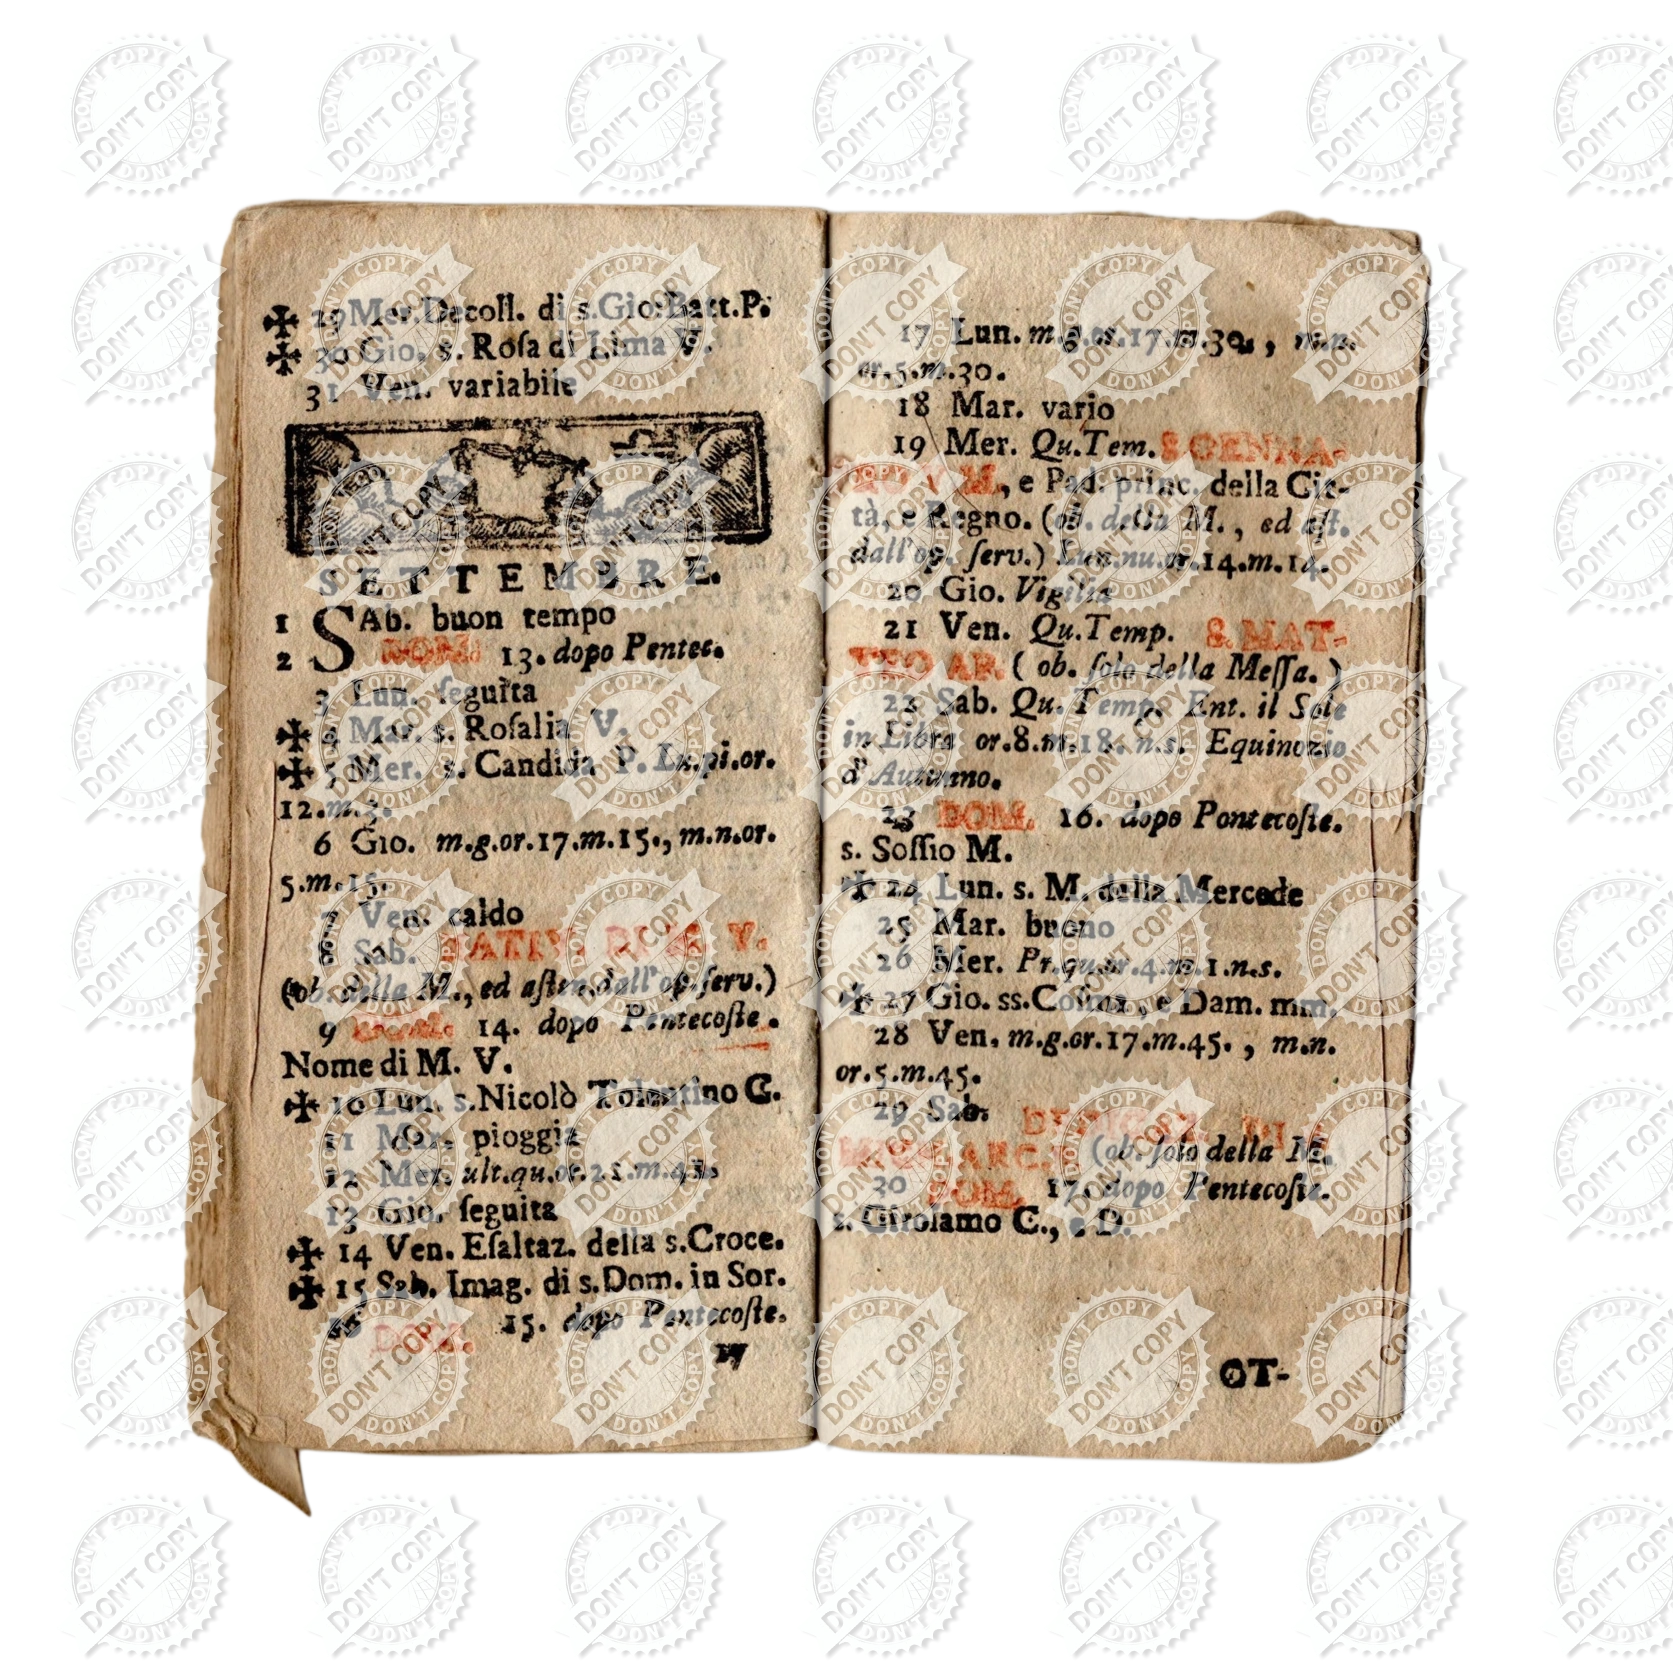 29 Mer. Decoll. di s. Gio: Batt. P.
30 Gio. s. Roſa di Lima V.
31 Ven. variabile
SETTEMBRE.
1 SAb. buon tempo
2 DOM. 13. dopo Pentec.
3 Lun. ſeguita
4 Mar. s. Roſalia V.
5 Mer. s. Candida P. Lu.pi.or.
12.m.3.
6 Gio. m.g.or.17.m.15., m.n.or.
5.m.15.
7 Ven. caldo
8 Sab. NATIV. DI M. V.
(ob. della M., ed aſten.dall'op.ſerv.)
9 DOM. 14. dopo Pentecoſte.
Nome di M. V.
10 Lun. s. Nicolò Tolentino C.
11 Mar. pioggia
12 Mer. ult.qu.or.21.m.
13 Gio. ſeguita
14 Ven. Eſaltaz. della s. Croce.
15 Sab. Imag. di s. Dom. in Sor.
16 DOM. 15. dopo Pentecoſte.
17
17 Lun. m.g.or.17.m.30., m.n.
or.5.m.30.
18 Mar. vario
19 Mer. Qu.Tem. S. GENNA-
RO V. M., e Pad. princ. della Cit-
tà, e Regno. (ob. della M., ed aſt.
dall'op. ſerv.) Lun.nu.or.14.m.14.
20 Gio. Vigilia
21 Ven. Qu.Temp. S. MAT-
TEO AP. (ob. ſolo della Meſſa.)
22 Sab. Qu. Temp. Ent. il Sole
in Libra or.8.m.18. n.s. Equinozio
d'Autunno.
23 DOM. 16. dopo Pentecoſte.
s. Soſſio M.
24 Lun. s. M. della Mercede
25 Mar. buono
26 Mer. Pr.qu.or.4.m.1.n.s.
27 Gio. ss. Coſma, e Dam. mm.
28 Ven. m.g.or.17.m.45., m.n.
or.5.m.45.
29 Sab. DEDICAZ. DI S.
MICH. ARC. (ob. ſolo della M.
30 DOM. 17. dopo Pentecoſte.
s. Girolamo C., e D.
OT-
DON'T COPY